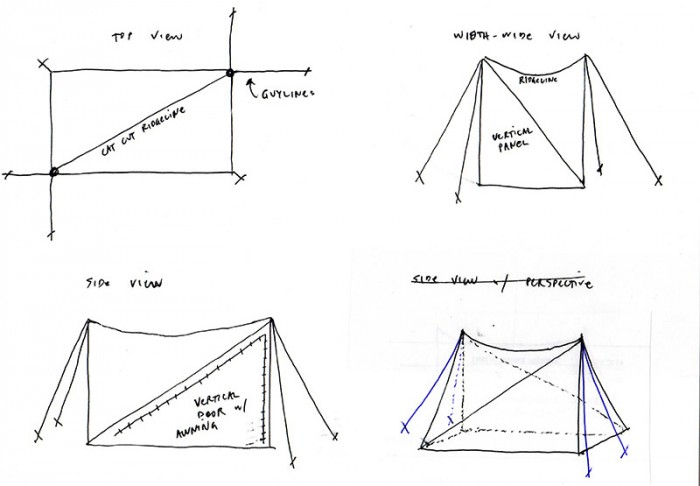 TOP VIEW
GUYLINES
CAT CUT RIDGELINE
WIDTH-WIDE VIEW
RIDGELINE
VERTICAL
PANEL
SIDE VIEW
VERTICAL
DOOR W/
AWNING
SIDE VIEW w/ PERSPECTIVE